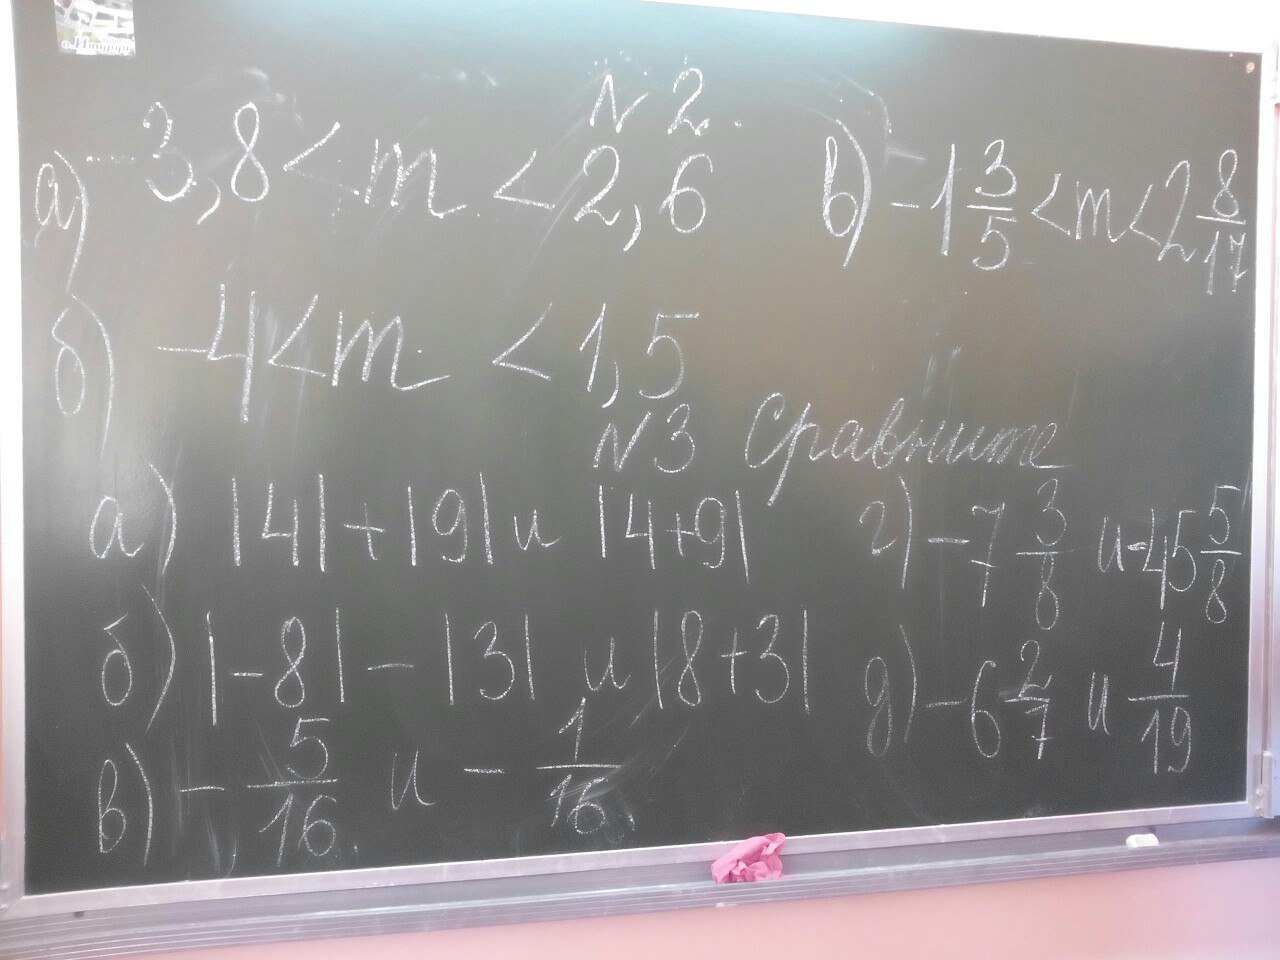 N 2.
а) -3,8 < m < 2,6
в) -1 3/5 < m < 2 8/17
б) -4 < m < 1,5
N3 Сравните
а) |4| + |9| и |4+9|
г) -7 3/8 и -45 5/8
б) |-8| - |3| и |8+3|
д) -6 2/7 и 4/19
в) - 5/16 и - 1/16